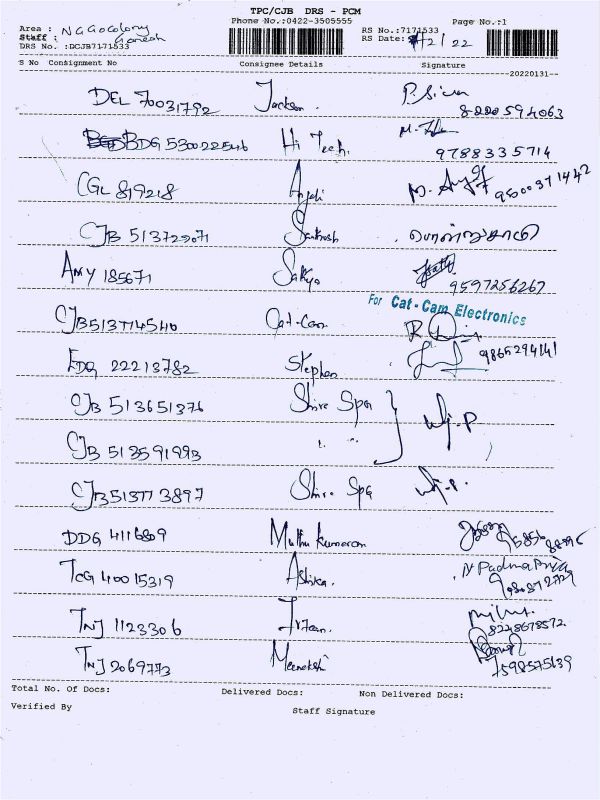 TPC/CJB DRS - PCM
Phone No.:0422-3505555
Page No.:1
Area : NGGOcolony
Staff : Ganesh
DRS No. :DCJB7171533
RS No.:7171533
RS Date: /2/22
S No Consignment No Consignee Details Signature
--20220131--
DEL 70031792 Jackson. P. Siva
8220594063
BDG 530022546 Hi Tech.
9788335714
CGL 819218 Anjali
9500371442
CJB 513722071 Santhosh
AMY 185671 Sathya
9597256267
For Cat-Cam Electronics
CJB513714540 Cat-Cam
EDG 22213782 Stephen 9865294141
CJB 513651376 Shire Spa
CJB 513591993 " "
CJB513773897 Shire Spa
DDG 4116809 Muthu Kumaran
TCG 40015319 Ashika. N Padma Priya
TNJ 1123306 Irfan.
8248678572
TNJ 2069773 Meenakshi
7598575139
Total No. Of Docs: Delivered Docs: Non Delivered Docs:
Verified By Staff Signature